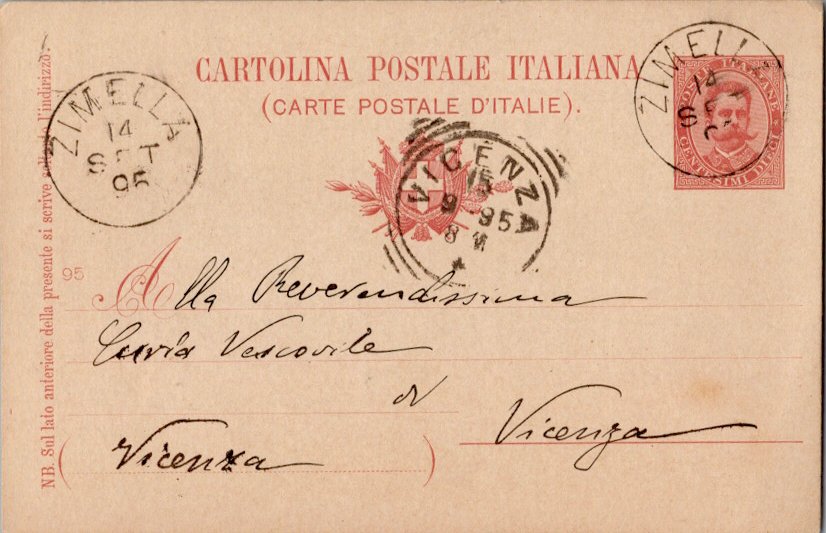 CARTOLINA POSTALE ITALIANA
(CARTE POSTALE D'ITALIE).
ZIMELLA
14
SET
95
ZIMELL
14
S
VICENZA
15
9-95
8 M
POSTE ITALIANE
CENTESIMI DIECI
NB. Sul lato anteriore della presente si scrive soltanto l'indirizzo.
95
Alla Reverendissima
Curia Vescovile
di
Vicenza
(Vicenza)